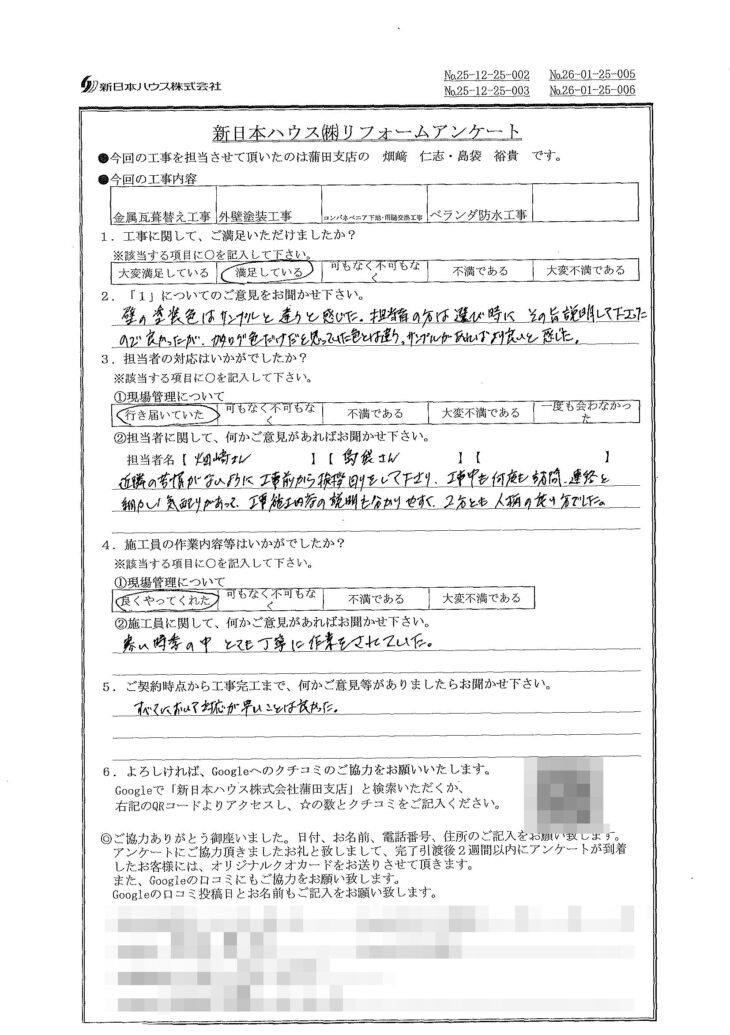 新日本ハウス株式会社
№25-12-25-002 №26-01-25-005
№25-12-25-003 №26-01-25-006
新日本ハウス㈱リフォームアンケート
●今回の工事を担当させて頂いたのは蒲田支店の 畑﨑 仁志・島袋 裕貴 です。
●今回の工事内容
金属瓦葺替え工事 外壁塗装工事 コンパネベニア下地・雨樋交換工事 ベランダ防水工事
1．工事に関して、ご満足いただけましたか？
※該当する項目に○を記入して下さい。
大変満足している 満足している 可もなく不可もなく 不満である 大変不満である
2．「1」についてのご意見をお聞かせ下さい。
壁の塗装色はサンプルと違うと感じた。担当者の方は選び時に その旨説明して下さった
ので良かったが、カタログ色だけだと思っていた色とは違う。サンプルがあればより良いと感じた。
3．担当者の対応はいかがでしたか？
※該当する項目に○を記入して下さい。
①現場管理について
行き届いていた 可もなく不可もなく 不満である 大変不満である 一度も会わなかった
②担当者に関して、何かご意見があればお聞かせ下さい。
担当者名【 畑崎さん 】【 島袋さん 】【 】
近隣の苦情がないように工事前から挨拶回りをして下さり、工事中も何度も訪問、連絡と
細かい気配りがあって、工事施工内容の説明も分かりやすく、2方とも人柄の良い方でした。
4．施工員の作業内容等はいかがでしたか？
※該当する項目に○を記入して下さい。
①現場管理について
良くやってくれた 可もなく不可もなく 不満である 大変不満である
②施工員に関して、何かご意見があればお聞かせ下さい。
寒い時季の中 とても丁寧に作業をされていた。
5．ご契約時点から工事完工まで、何かご意見等がありましたらお聞かせ下さい。
すべてにおいて対応が早いことは良かった。
6．よろしければ、Googleへのクチコミのご協力をお願いいたします。
Googleで「新日本ハウス株式会社蒲田支店」と検索いただくか、
右記のQRコードよりアクセスし、☆の数とクチコミをご記入ください。
◎ご協力ありがとう御座いました。日付、お名前、電話番号、住所のご記入をお願い致します。
アンケートにご協力頂きましたお礼と致しまして、完了引渡後２週間以内にアンケートが到着
したお客様には、オリジナルクオカードをお送りさせて頂きます。
また、Googleの口コミにもご協力をお願い致します。
Googleの口コミ投稿日とお名前もご記入をお願い致します。